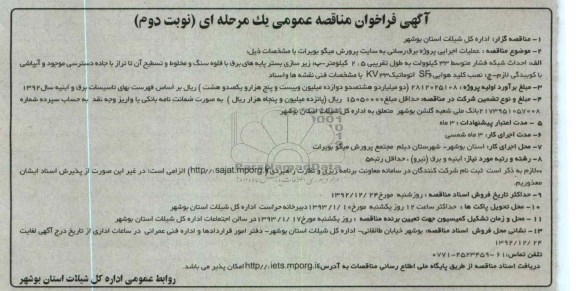 آگهی فراخوان مناقصه عمومی یك مرحله ای (نوبت دوم)
۱- مناقصه گزار: اداره کل شیلات استان بوشهر
۲- موضوع مناقصه : عملیات اجرایی پروژه برق رسانی به سایت پرورش میگو بویرات با مشخصات ذیل:
الف: احداث شبکه فشار متوسط ۳۳ کیلوولت به طول تقریبی ۲.۵ کیلومتر-ب: زیر سازی بستر پایه های برق با قلوه سنگ و مخلوط و تسطیح آن تا تراز با جاده دسترسی موجود و آبپاشی
با کوبیدگی لازم-ج: نصب کلید هوایی SF۶ اتوماتیک KV۳۳ با مشخصات فنی نقشه ها واسناد
۳- مبلغ بر آورد اولیه پروژه : ۲۸۱۲۰۲۵۱۰۸ (دو میلیاردو هشتصدو دوازده میلیون وبیست و پنج هزارو یکصدو هشت ) ریال بر اساس فهرست بهای تاسیسات برق و ابنیه سال۱۳۹۲
۴- مبلغ و نوع تضمین شرکت در مناقصه: حداقل مبلغ ۱۵۰۵۰۰۰۰ ریال (پانزده میلیون و پنجاه هزار ریال ) به صورت ضمانت نامه بانکی یا واریز وجه نقد به حساب سپرده شماره
۲۱۷۳۹۵۱۰۵۷۰۰۸ بانک ملی شعبه گلشن بوشهر متعلق به اداره کل شیلات استان بوشهر
۵- مدت اعتبار پیشنهادات : ۳ ماه
۶- مدت اجرای کار: ۳ ماه شمسی
۷- محل اجرای کار: استان بوشهر- شهرستان دیلم مجتمع پرورش میگو بویرات
۸- رشته و رتبه مورد نیاز: ابنیه و برق (نیرو) ، حداقل رتبه۵
*لازم به ذکر است ثبت نام شرکت کنندگان در سامانه معاونت برنامه ریزی و نظارت راهبردی(http://.sajat.mporg.ir) الزامی است؛ در غیر این صورت از پذیرش اسناد ایشان
معذوریم.
۹- حداکثر تاریخ فروش اسناد مناقصه : روزشنبه مورخ۱۳۹۲/۱۲/۲۴
۱۰- محل تحویل پاکت ها : حداکثر ساعت ۱۲ روز یکشنبه مورخ ۱۳۹۳/۱/۱۰ دبیرخانه حراست اداره کل شیلات استان بوشهر
۱۱- محل و زمان تشکیل کمیسیون جهت تعیین برنده مناقصه : روز یکشنبه مورخ ۱۳۹۳/۱/۱۷ در سالن اجتماعات اداره کل شیلات استان بوشهر
۱۲- نشانی محل فروش اسناد مناقصه: بوشهر خیابان طالقانی- اداره کل شیلات استان بوشهر- دفتر امور قراردادها و اداره فنی عمرانی در ساعات اداری از تاریخ درج آگهی لغایت
۱۳۹۲/۱۲/۲۴
تلفن تماس: ۶۱-۲۵۲۳۴۵۹-۰۷۷۱
دریافت اسناد مناقصه از طریق پایگاه ملی اطلاع رسانی مناقصات به آدرس http://.iets.mporg.ir امکان پذیر می باشد.
روابط عمومی اداره کل شیلات استان بوشهر
ParsNamadData